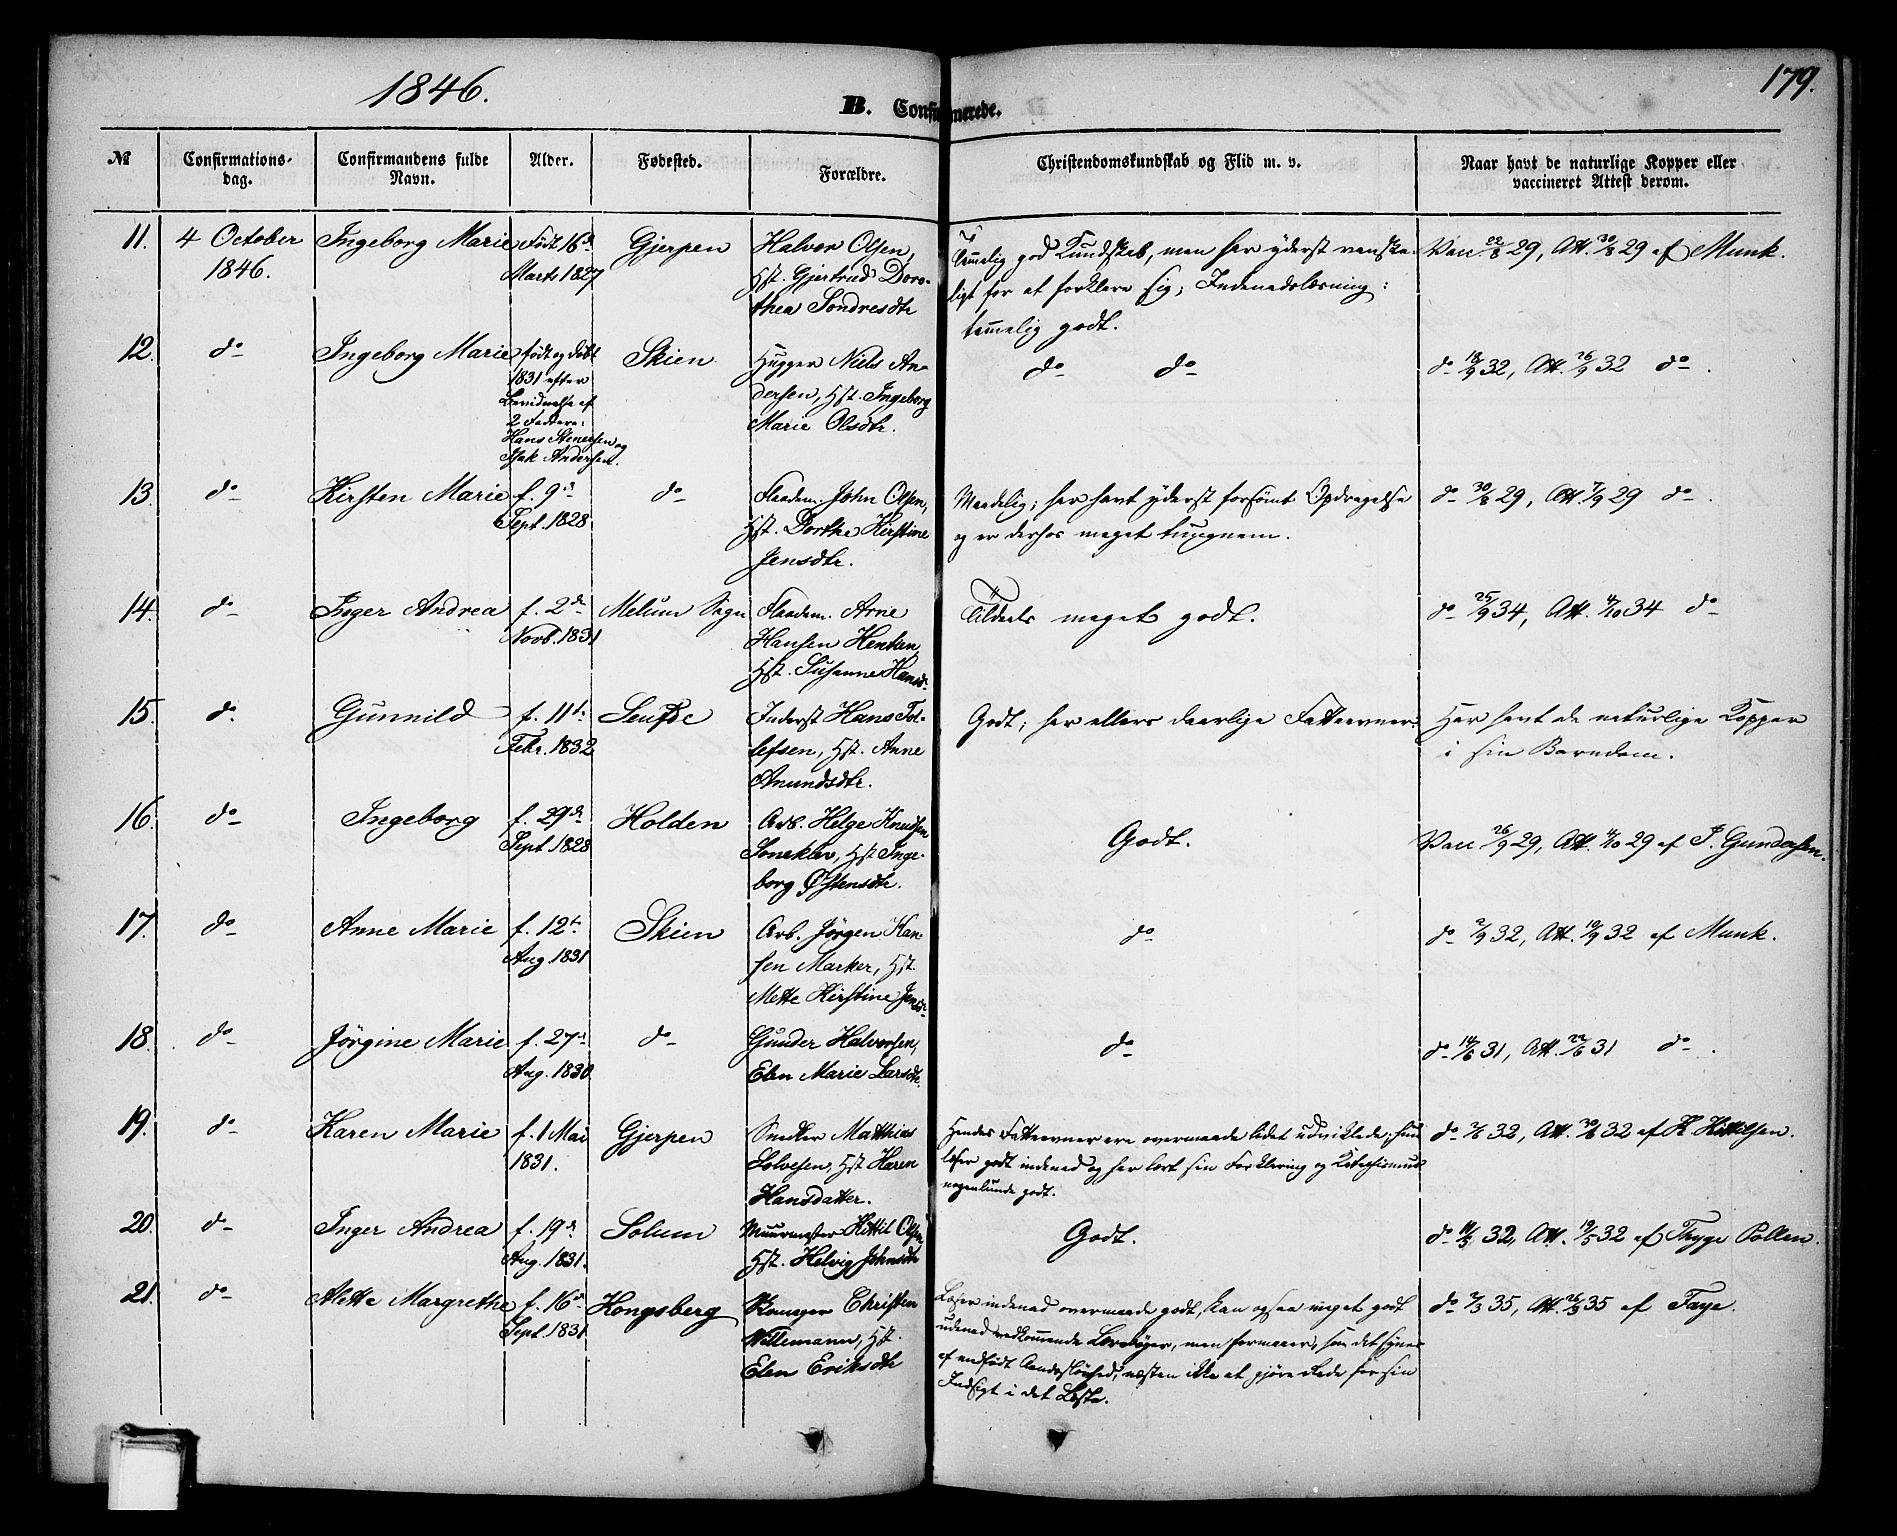 1846.
B. Confirmerede.
179.
№
Confirmations-
dag.
Confirmandens fulde
Navn.
Alder.
Fødested.
Forældre.
Christendomskundskab og Flid m. v.
Naar havt de naturlige Kopper eller
vaccineret Attest derom.
11.
4 October
1846.
Ingeborg Marie
Født 16d
Marts 1827
Gjerpen
Halvor Olsen,
Hst. Gjertrud Doro-
thea Sondresdtr
Temelig god Kundskab, men har yderst vanske-
ligt for at forklare sig; Indenadslæsning:
temelig godt.
Vac. 22/8 29, Att. 30/8 29 af Munk.
12.
do
Ingeborg Marie
født og døbt
1831 efter
Bevidnelse af
2 Faddere:
Hans Stenersen og
Isak Andersen.
Skien
Hugger Niels An-
dersen, Hst. Ingeborg
Marie Olsdtr.
do do
do 18/9 32, Att. 26/9 32 do.
13.
do
Kirsten Marie
f. 9d
Sept. 1828
do
Flaadem. John Olsen,
Hst. Dorthe Kirstine
Jensdtr.
Maadelig; har havt yderst forsømt Opdragelse
og er derhos meget tungnem.
do 30/8 29, Att. 7/9 29 do.
14.
do
Inger Andrea
f. 2d
Novb. 1831
Melum Sogn
Flaadem. Arne
Hansen
Hst. Susanne Hansd.
Tildeels meget godt.
do 25/9 34, Att. 4/10 34 do
15.
do.
Gunnild
f. 11t
Febr. 1832
Inderst Hans Tol-
lefsen, Hst. Anne
Amundsdtr.
Godt; har ellers daarlige Fatteevner.
Har havt de naturlige Kopper
i sin Barndom.
16.
do
Ingeborg
f. 29d
Sept. 1828
Holden
Arb. Helge Knudsen
Hst. Inge-
borg Østensdtr.
Godt.
Vac. 26/9 29, Att. 4/10 29 af P. Gundersen.
17.
do
Anne Marie
f. 12t
Aug. 1831
Skien
Arb. Jørgen Han-
sen Marker, Hst.
Mette Kirstine Jensd.
do
do 2/9 32, Att. 10/9 32 af Munk.
18.
do
Jørgine Marie
f. 27d
Aug. 1830
do
Gunder Halvorsen,
Elen Marie Larsdtr.
do
do 14/6 31, Att. 22/6 31 do.
19.
do
Karen Marie
f. 1 Mai
1831.
Gjerpen
Snedker Matthias
Solvesen, Hst Karen
Hansdatter.
Hendes Fatteevner ere overmaade lidet udviklede; hun
læser godt indenad og har lært sin Forklaring og Katechismus
nogenlunde godt.
32, Att. 32 af K. Kittelsen.
20.
do
Inger Andrea
f. 19d
Aug. 1831.
Solum
Muurmester Kittil Olsen
Hst. Helvig Johnsdtr
Godt.
32, Att. 19/5 32 af Thyge Pollen.
21.
do
Alette Margrethe
f. 16d
Sept. 1831
Kongsberg
Christen
Willemann, Hst.
Elen Eriksdtr
Læser indenad overmaade godt, kan ogsaa meget godt
udenad vedkommende Lærebøger, men formaaer, som det synes
af medfødt Aandssløvhed, næsten ikke at gjøre Rede for sin
Indsigt i det Læste.
35, Att. 35 af Faye.